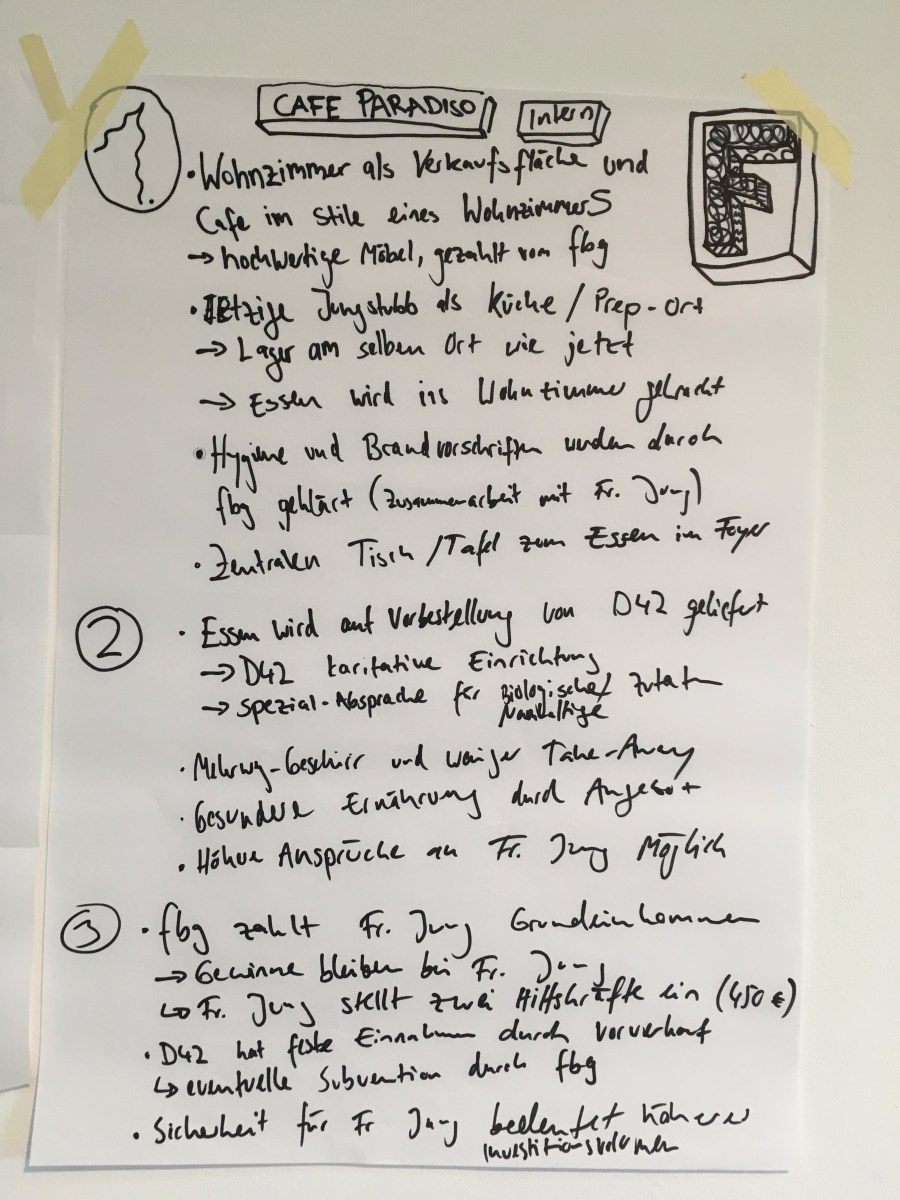 CAFE PARADISO
Intern
F
1.
• Wohnzimmer als Verkaufsfläche und
Cafe im Stile eines WohnzimmerS
→ hochwertige Möbel, gezahlt vom fbg
• Jetzige Jungstubb als Küche / Prep-Ort
→ Lager am selben Ort wie jetzt
→ Essen wird ins Wohnzimmer gebracht
• Hygiene und Brandvorschriften werden durch
fbg geklärt (Zusammenarbeit mit Fr. Jung)
• Zentralen Tisch / Tafel zum Essen im Foyer
2
• Essen wird auf Vorbestellung von D42 geliefert
→ D42 karitative Einrichtung
→ Spezial-Absprache für Biologische/ Zutaten
Nachhaltige
• Mehrweg-Geschirr und weniger Take-Away
• Gesundere Ernährung durch Angebot
• Höhere Ansprüche an Fr. Jung Möglich
3
• fbg zahlt Fr. Jung Grundeinkommen
→ Gewinne bleiben bei Fr. Jung
↳ Fr. Jung stellt zwei Hilfskräfte ein (450 €)
• D42 hat feste Einnahmen durch Vorverkauf
↳ eventuelle Subvention durch fbg
• Sicherheit für Fr Jung bedeutet höheres
Investitionsvolumen